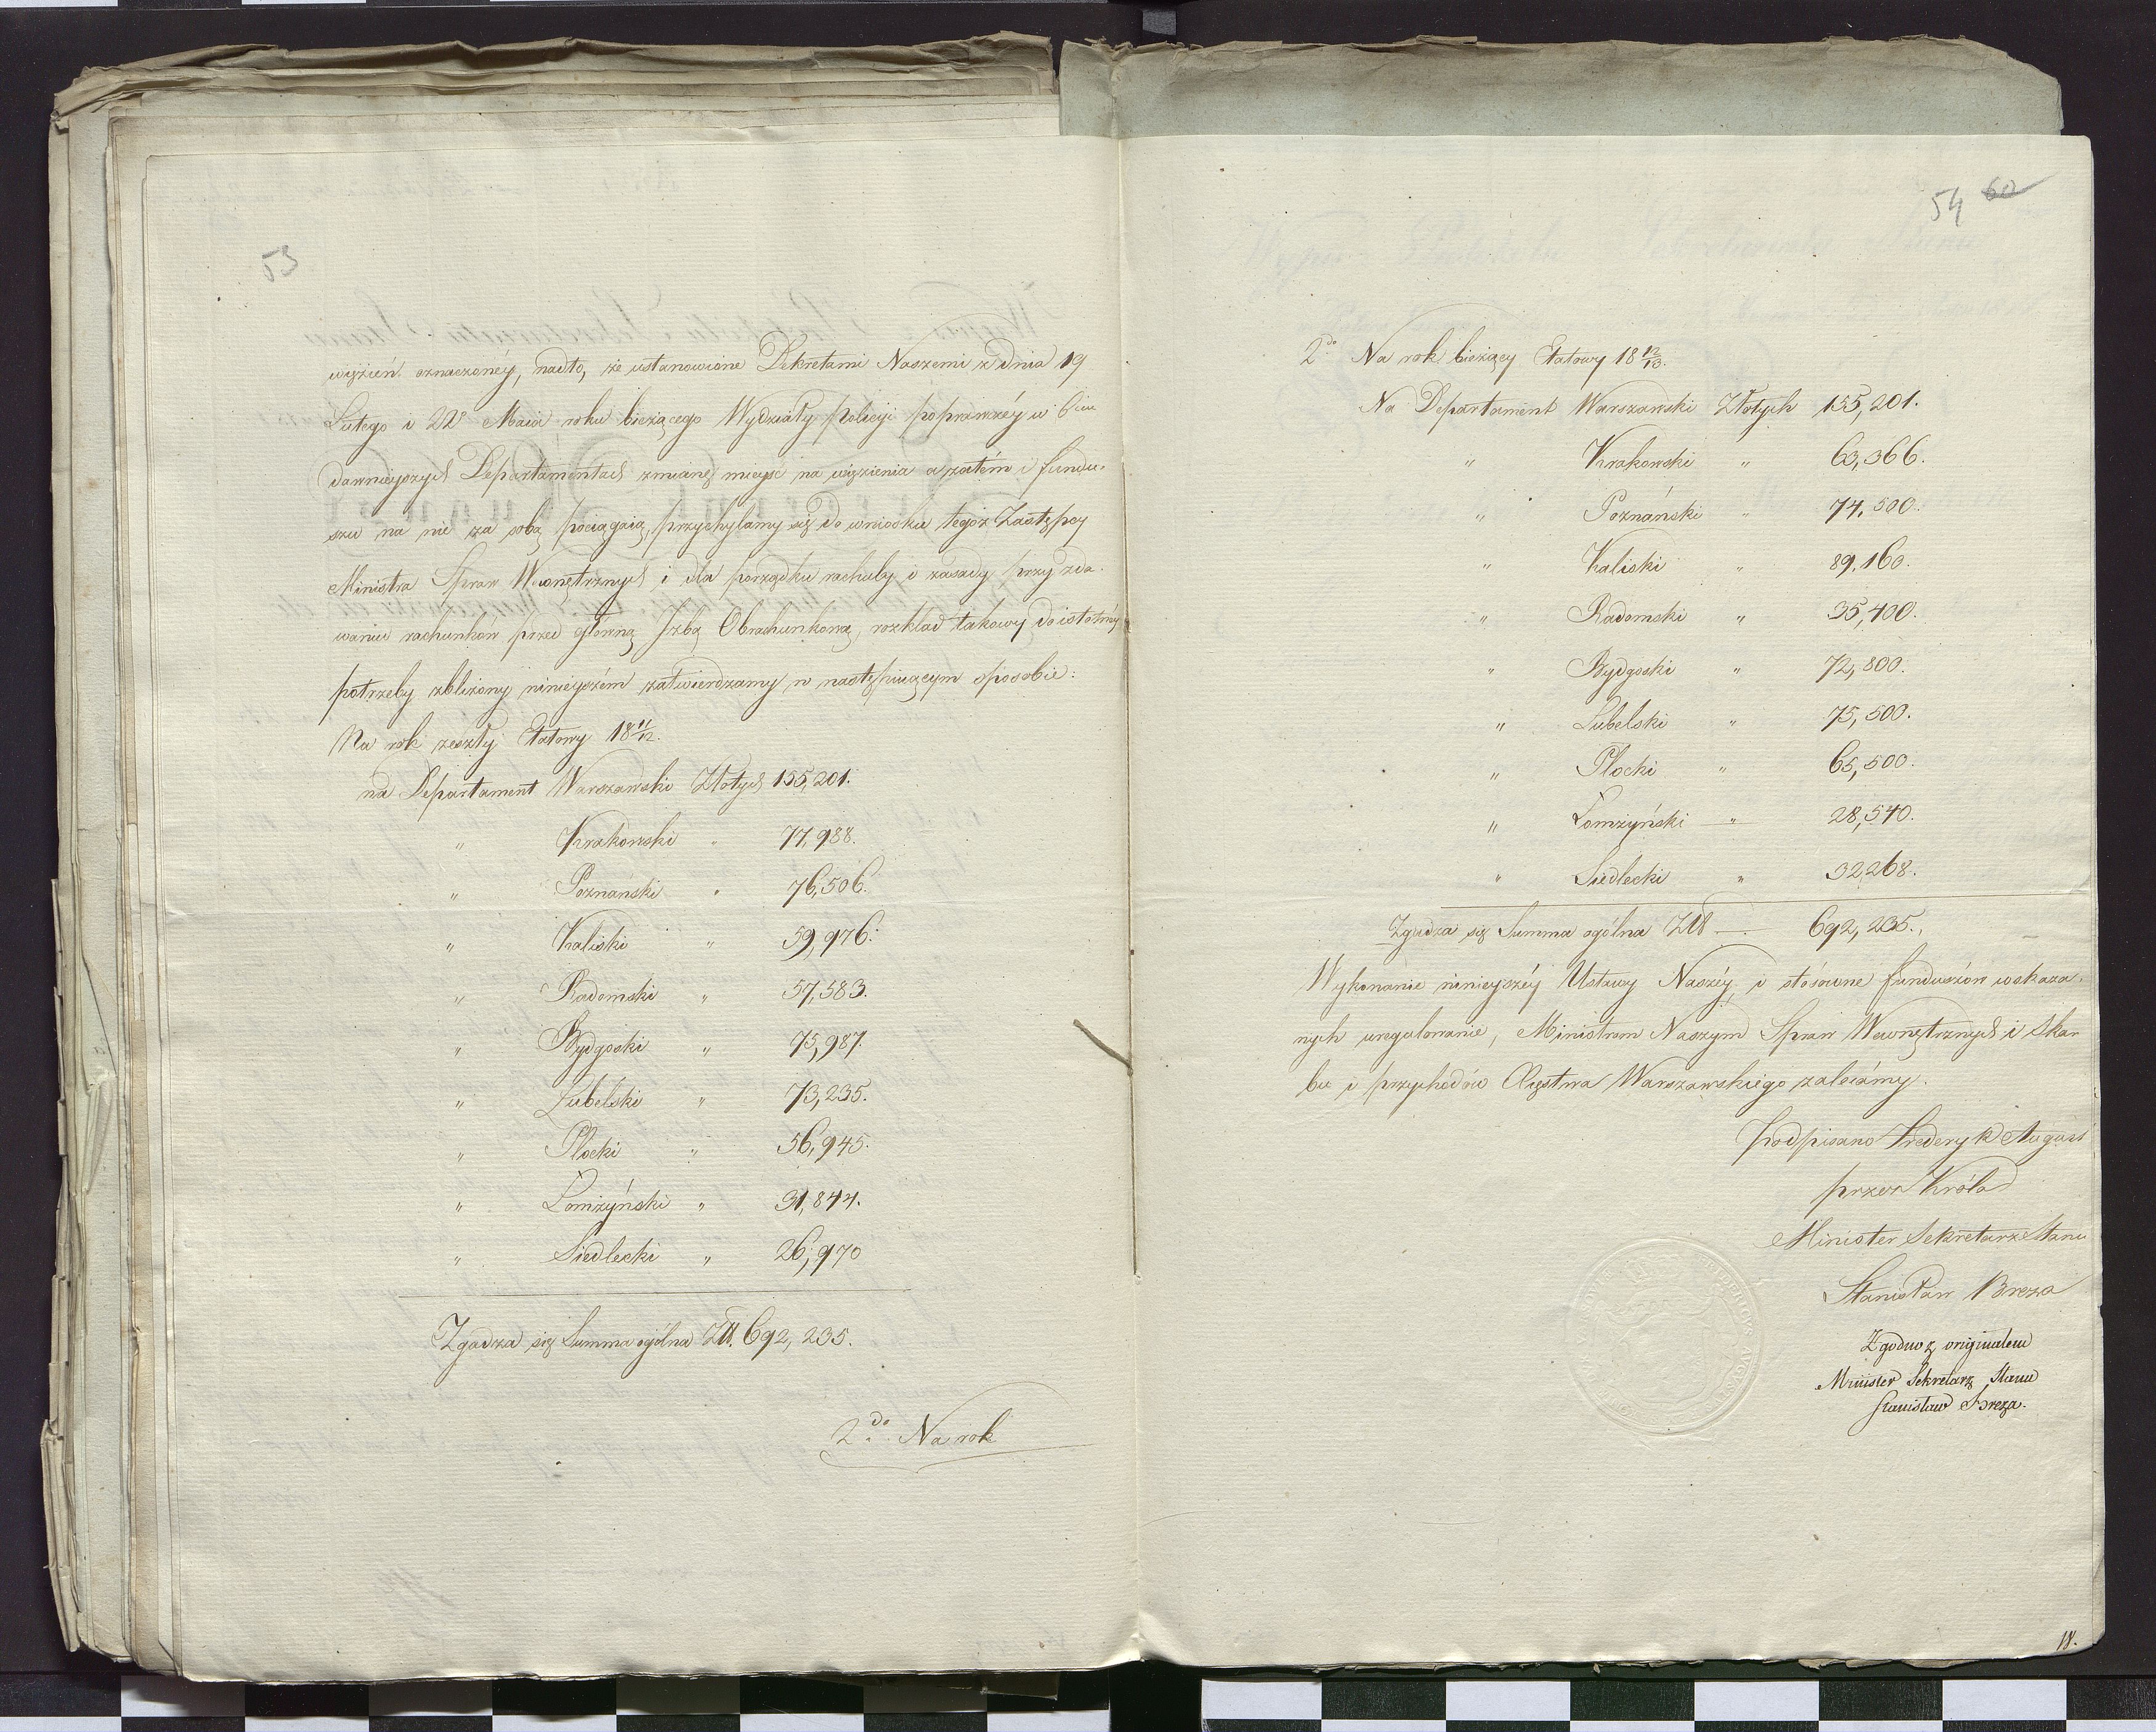 53
więzień oznaczonéy, nadto, że ustanowione Dekretami Naszemi z dnia 19
Lutego i 22º Maia roku bieżącego Wydziały policyi poprawczéy w 6ciu
dawnieyszych Departamentach zmianę mieysc na więzienia a zatém i fundu-
szu na nie za sobą pociągaią, przychylamy się do wniosku tegoż Zastępcy
Ministra Spraw Wewnętrznych i dla porządku rachuby i zasady przy zda-
waniu rachunków przed główną Izbą Obrachunkową, rozkład takowy do istotnéy
potrzeby zbliżony ninieyszém zatwierdzamy w następuiącym sposobie:
Na rok zeszły Etatowy 18 11/12.
na Departament Warszawski Złotych 155,201.
" Krakowski " 77,988.
" Poznański " 76,506.
" Kaliski " 59,976.
" Radomski " 57,583.
" Bydgoski " 75,987.
" Lubelski " 73,235.
" Płocki " 56,945.
" Łomżyński " 31,844.
" Siedlecki " 26,970
Zgadza się Summa ogólna Złł. 692,235.
2do Na rok
54 60
2do Na rok bieżący Etatowy 18 12/13.
Na Departament Warszawski Złotych 155,201.
" Krakowski " 63,366.
" Poznański " 74,500.
" Kaliski " 89,160.
" Radomski " 35,400.
" Bydgoski " 72,800.
" Lubelski " 75,500.
" Płocki " 65,500.
" Łomżyński " 28,540.
" Siedlecki " 32268.
Zgadza się Summa ogólna Złł — 692,235.
Wykonanie ninieyszéy Ustawy Naszéy i stósowne funduszów wskaza-
nych uregulowanie, Ministrom Naszym Spraw Wewnętrznych i Skar
bu i przychodów Xięstwa Warszawskiego zalecámy.
podpisano Frederyk August
przez Króla
Minister Sekretarz Stanu
Stanisław Breza
Zgodno z originałem
Minister Sekretarz Stanu
Stanisław Breza.
18.